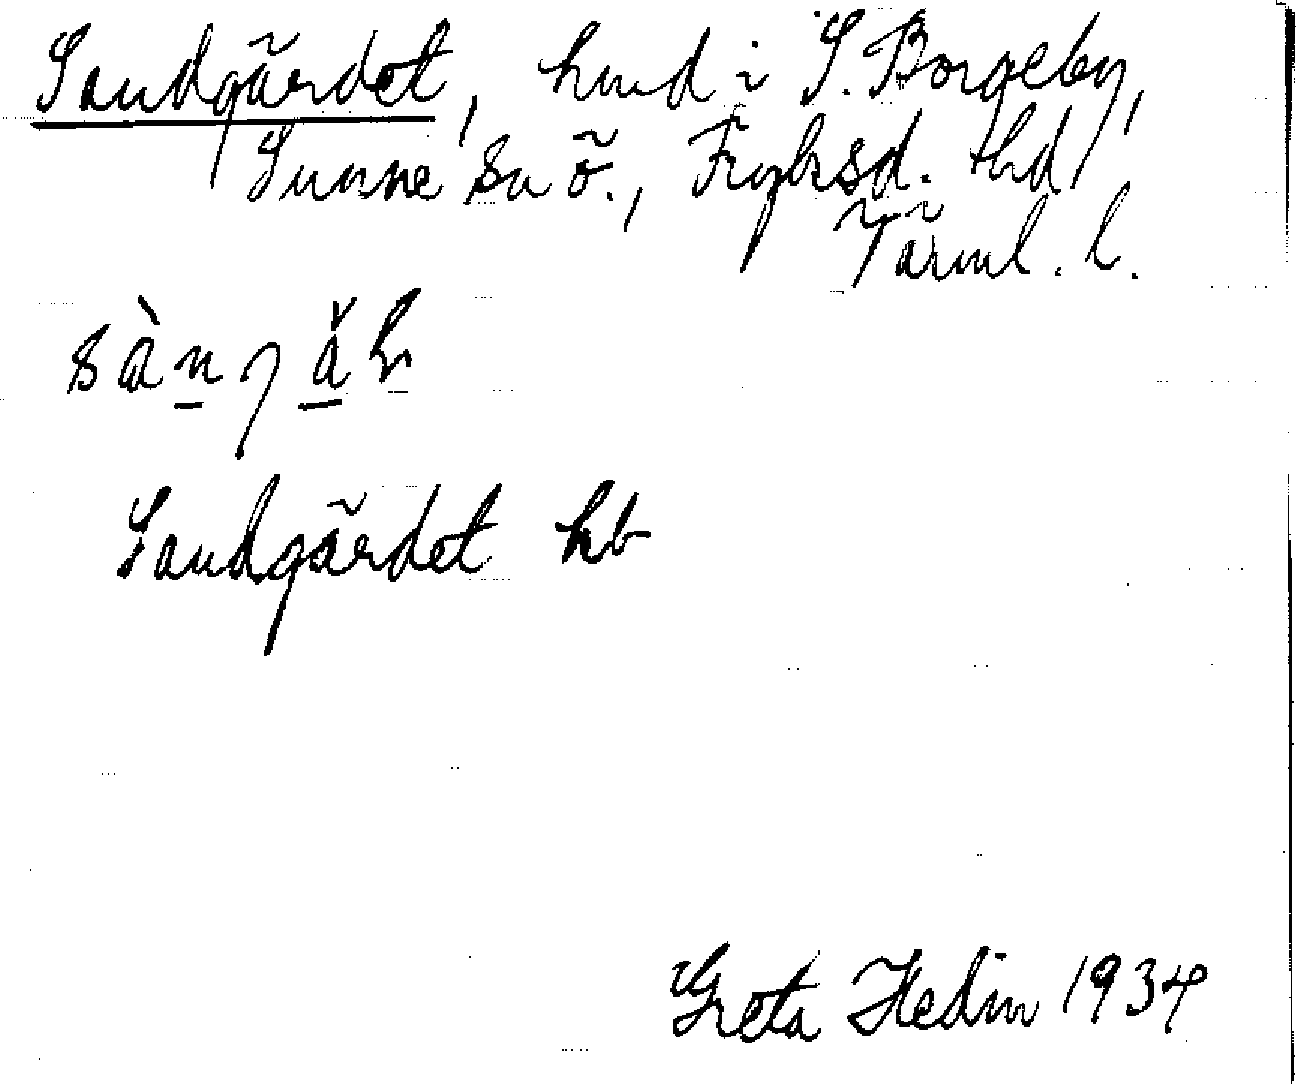 Sandgärdet, hmd i S. Borgeby,
Sunne sn ö., Fryksd. thd
Värml. l.
Sandgärdet hb
Greta Hedin 1934